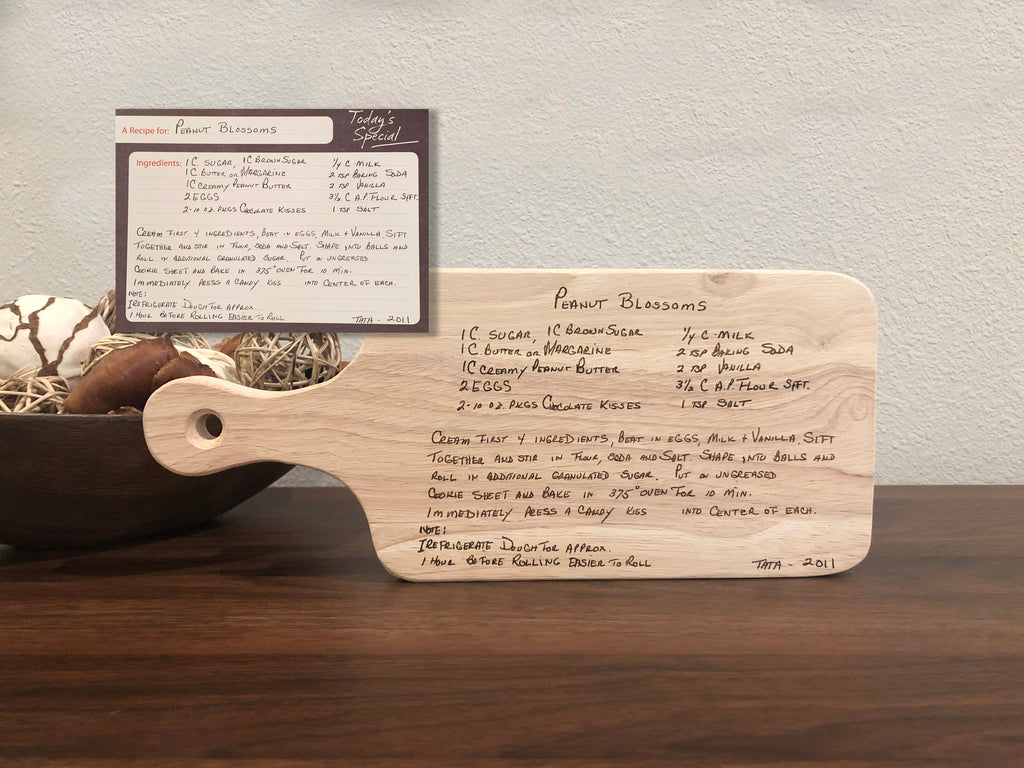 A Recipe for: PEANUT BLOSSOMS
Today's Special
Ingredients: 1 C. SUGAR, 1C BROWN SUGAR 1/4 C MILK
1C BUTTER OR MARGARINE 2 TSP BAKING SODA
1C CREAMY PEANUT BUTTER 2 TSP VANILLA
2 EGGS 3½ C A.P. FLOUR SIFT.
2-10 OZ. PKGS CHOCOLATE KISSES 1 TSP SALT
CREAM FIRST 4 INGREDIENTS, BEAT IN EGGS, MILK + VANILLA. SIFT
TOGETHER AND STIR IN FLOUR, SODA AND SALT. SHAPE INTO BALLS AND
ROLL IN ADDITIONAL GRANULATED SUGAR. PUT ON UNGREASED
COOKIE SHEET AND BAKE IN 375° OVEN FOR 10 MIN.
IMMEDIATELY PRESS A CANDY KISS INTO CENTER OF EACH.
NOTE:
REFRIGERATE DOUGH FOR APPROX.
1 HOUR BEFORE ROLLING EASIER TO ROLL TATA - 2011
PEANUT BLOSSOMS
1 C. SUGAR, 1C BROWN SUGAR 1/4 C MILK
1C BUTTER OR MARGARINE 2 TSP BAKING SODA
1C CREAMY PEANUT BUTTER 2 TSP VANILLA
2 EGGS 3½ C A.P. FLOUR SIFT.
2-10 OZ. PKGS CHOCOLATE KISSES 1 TSP SALT
CREAM FIRST 4 INGREDIENTS, BEAT IN EGGS, MILK + VANILLA. SIFT
TOGETHER AND STIR IN FLOUR, SODA AND SALT. SHAPE INTO BALLS AND
ROLL IN ADDITIONAL GRANULATED SUGAR. PUT ON UNGREASED
COOKIE SHEET AND BAKE IN 375° OVEN FOR 10 MIN.
IMMEDIATELY PRESS A CANDY KISS INTO CENTER OF EACH.
NOTE:
REFRIGERATE DOUGH FOR APPROX.
1 HOUR BEFORE ROLLING EASIER TO ROLL TATA - 2011